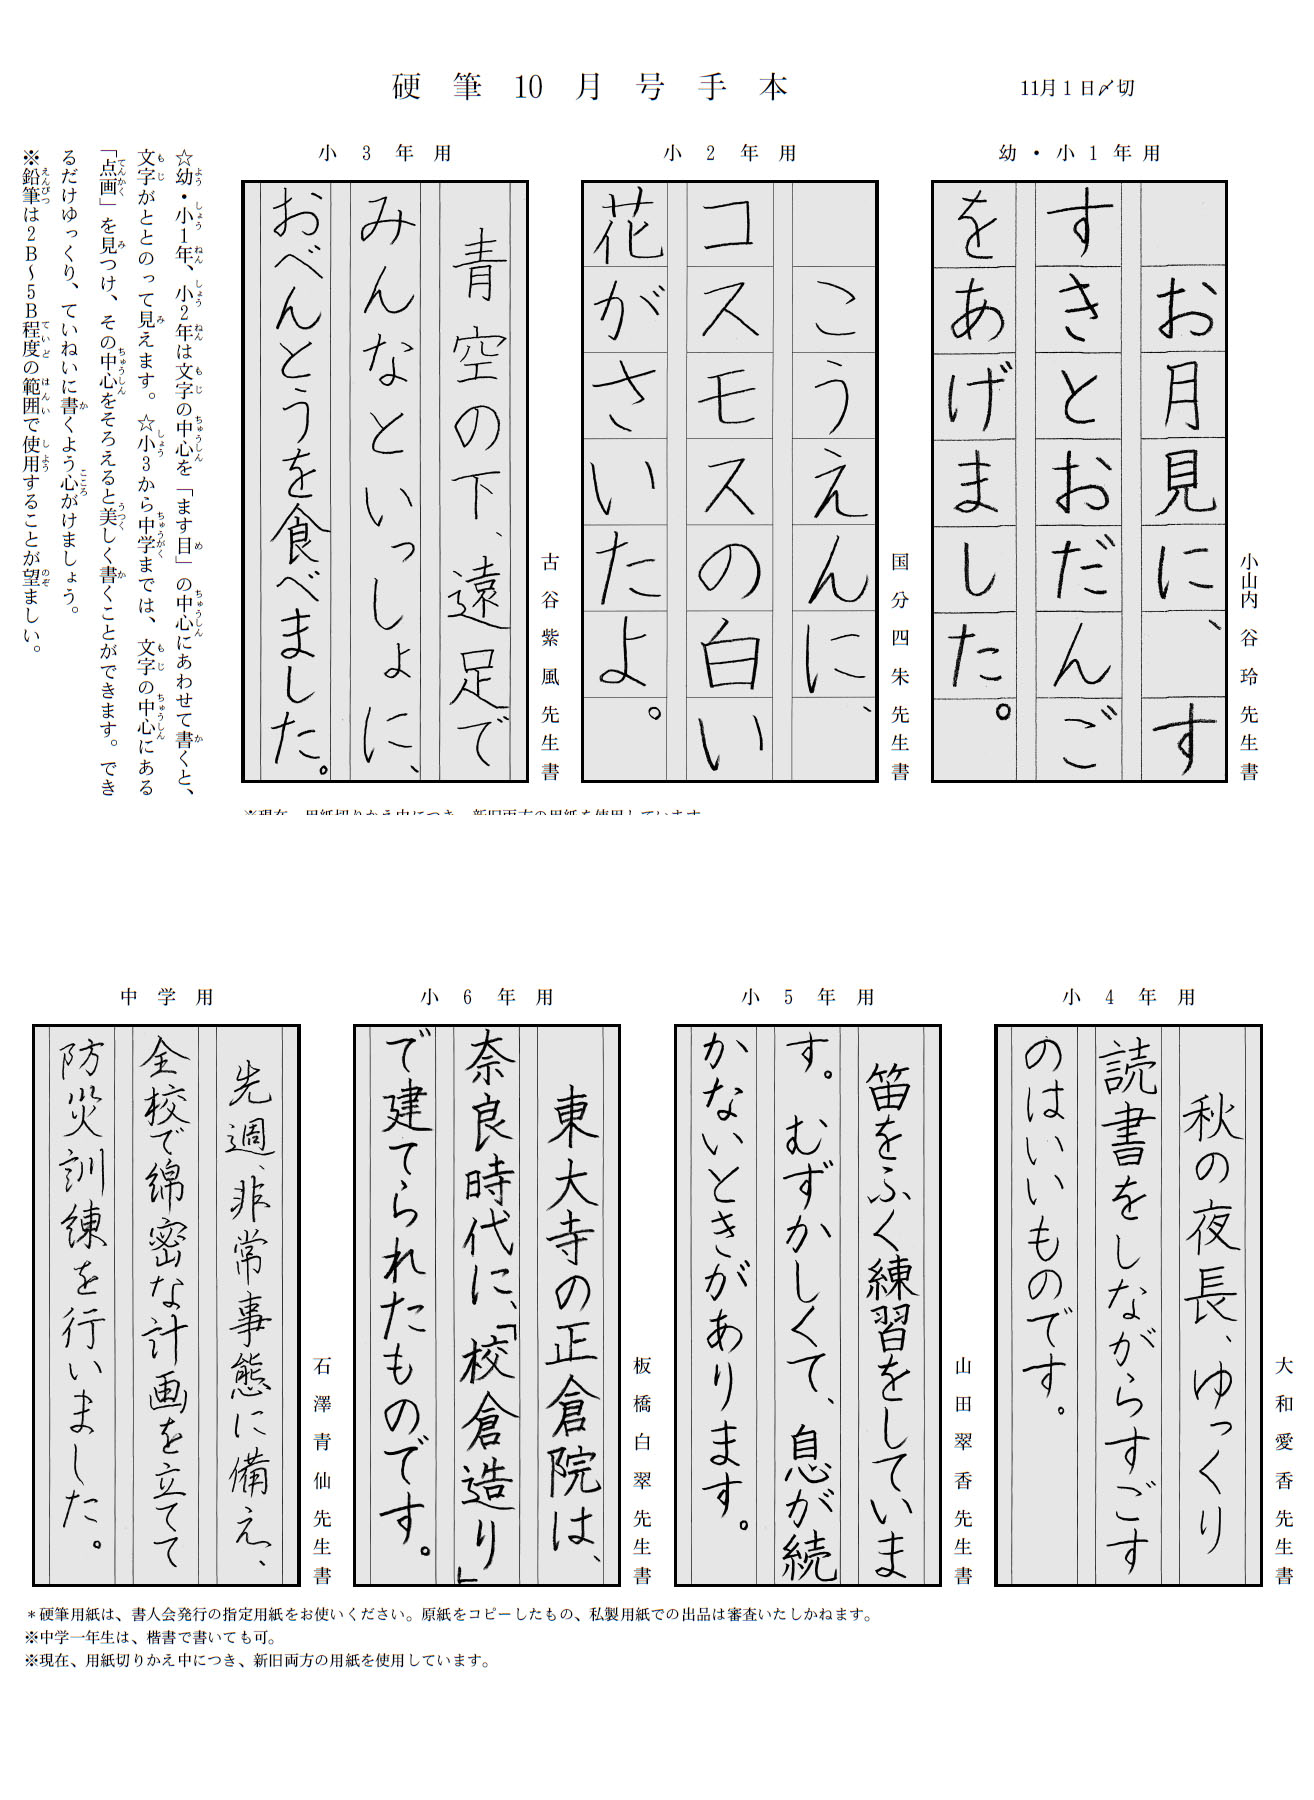 硬筆10月号手本
11月1日〆切
幼・小1年用
お月見に、す
すきとおだんご
をあげました。
小山内谷玲先生書
小2年用
こうえんに、
コスモスの白い
花がさいたよ。
国分四朱先生書
小3年用
青空の下、遠足で
みんなといっしょに、
おべんとうを食べました。
古谷紫風先生書
☆幼・小1年、小2年は文字の中心を「ます目」の中心にあわせて書くと、
文字がととのって見えます。☆小3から中学までは、文字の中心にある
「点画」を見つけ、その中心をそろえると美しく書くことができます。でき
るだけゆっくり、ていねいに書くよう心がけましょう。
※鉛筆は2B～5B程度の範囲で使用することが望ましい。
※現在、用紙切りかえ中につき、新旧両方の用紙を使用しています。
小4年用
秋の夜長、ゆっくり
読書をしながらすごす
のはいいものです。
大和愛香先生書
小5年用
笛をふく練習をしていま
す。むずかしくて、息が続
かないときがあります。
山田翠香先生書
小6年用
東大寺の正倉院は、
奈良時代に、「校倉造り」
で建てられたものです。
板橋白翠先生書
中学用
先週、非常事態に備え、
全校で綿密な計画を立てて
防災訓練を行いました。
石澤青仙先生書
＊硬筆用紙は、書人会発行の指定用紙をお使いください。原紙をコピーしたもの、私製用紙での出品は審査いたしかねます。
※中学一年生は、楷書で書いても可。
※現在、用紙切りかえ中につき、新旧両方の用紙を使用しています。